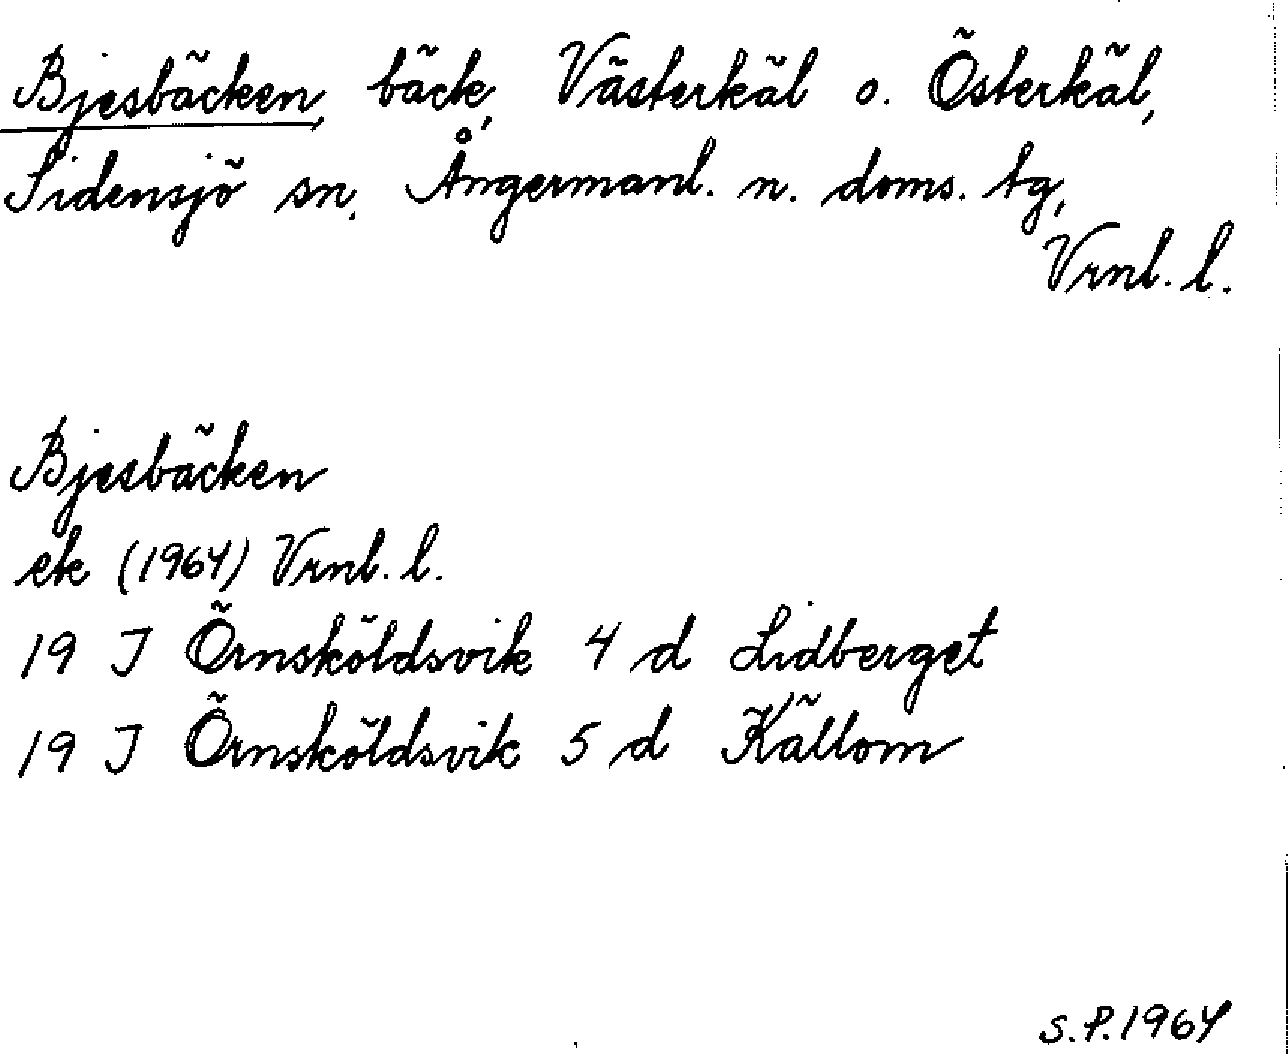 Bjesbäcken, bäck, Västerkäl o. Österkäl,
Sidensjö sn, Ångermanl. n. doms. tg,
Vrnl. l.
Bjesbäcken
ek (1964) Vrnl. l.
19 J Örnsköldsvik 4 d Lidberget
19 J Örnsköldsvik 5 d Källom
S.P. 1964